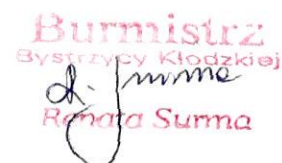 Burmistrz
Bystrzycy Kłodzkiej
Renata Surma